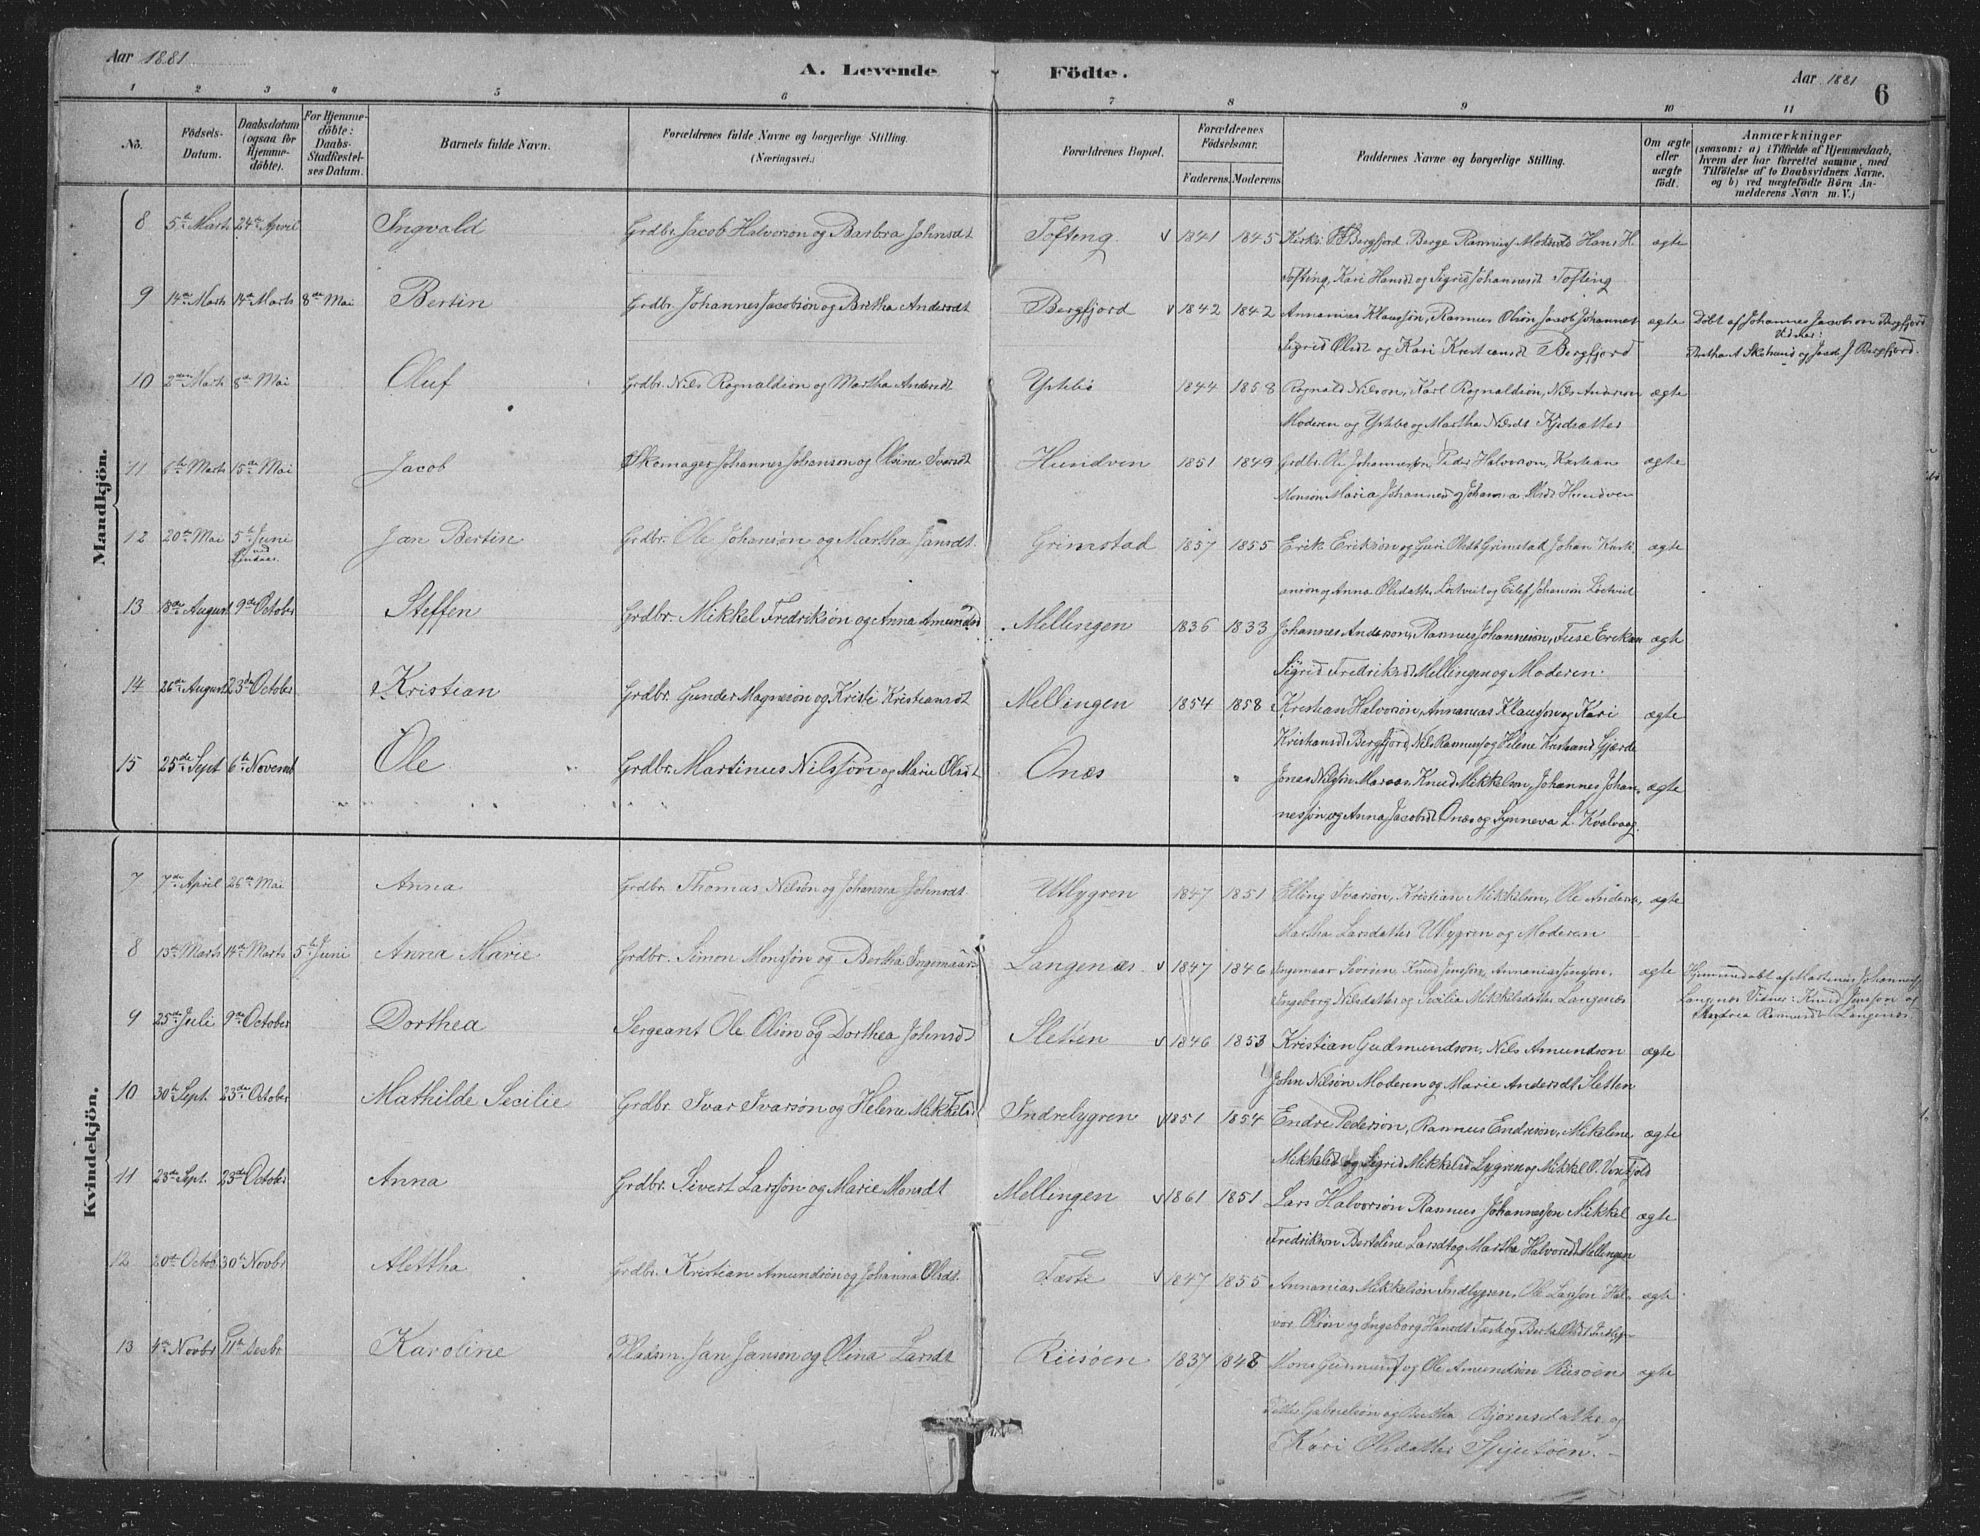 Aar 1881
A. Levende Födte.
Aar 1881
6
1 2 3 4 5 6 7 8 9 10 11
No. Födsels-Datum. Daabsdatum (ogsaa for Hjemme-döbte). For Hjemme-döbte: Daabs-Stadfæstel-ses Datum. Barnets fulde Navn. Forældrenes fulde Navne og borgerlige Stilling. (Næringsvei.) Forældrenes Bopæl. Forældrenes Födselsaar. Faderens. Moderens. Faddernes Navne og borgerlige Stilling. Om ægte eller uægte födt. Anmærkninger (saasom: a) i Tilfælde af Hjemmedaab, hvem der har forrettet samme, med Tilföielse af to Daabsvidners Navne, og b) ved uægtefödte Börn An-melderens Navn m. V.)
Mandkjön.
8 5te Marts 24de April Ingvald Grdbr. Jacob Halvorson og Barbra Johnsdt Tofting 1841 1845 Bergfjord Berge Hans H. ægte
Tofting, Kari Hansdt og Sigrid Johannesdt Tofting
9 14de Marts 14de Marts 8de Mai Bertin Grdbr. Johannes Jacobson og Bertha Andersdt Bergfjord 1842 1842 Annanias Klausson, Rasmus Olson Jacob Johannes ægte Döbt af Johannes Jacobson Bergfjord
Sigrid Olsdt og Kari Kristiansdt Bergfjord
10 2den Marts 8de Mai Oluf Grdbr. Nils Rognaldson og Martha Andersdt Ystebö 1844 1858 Rognald Nilson, Karl Rognaldson, Nils Anderson ægte
Moderen og Martha Nilsdt
11 6te Marts 15de Mai Jacob Skomager Johannes Johanson og Olsine Ivarsdt Hundven 1851 1849 Grdbr. Ole Johannesson, Peder Halvorson, Kristian ægte
Monson Maria Hundven
12 20de Mai 5te Juni Jan Bertin Grdbr. Ole Johanson og Martha Jansdt Grimstad 1857 1855 Erik Erikson og Guri Olsdt Grimstad Johan Kristi ægte
anson og Anna Olsdatter Johanson
13 18de August 9de October Steffen Grdbr. Mikkel Fredrikson og Anna Amundsd Mellingen 1836 1833 Johannes Anderson, Rasmus Johanneson, Erikson ægte
Sigrid Fredriksdt Mellingen og Moderen.
14 26de August 23de October Kristian Grdbr. Gunder Magneson og Kristi Kristiansdt Mellingen 1854 1858 Kristian Halvorson, Annanias Klausson og Kari ægte
Kristiansdt Bergfjord, Nils Rasmus og Helene Gjærde
15 25de Sept 6te Novemb Ole Grdbr. Martinus Nilsson og Marie Olsdt Onæs " Jonas Nilsson Knud Mikkelson, Johannes Johan- ægte
nesson og Anna Jacobsdt Onæs og Synneva L. Kvalvaag.
Kvindekjön.
7 7de April 26de Mai Anna Grdbr. Thomas Nilson og Johanna Johnsdt. Utlygren 1847 1851 Elling Ivarson, Kristian Mikkelson, Ole Anders ægte
Martha Larsdatter Utlygren og Moderen
8 13de Marts 14de Marts 5te Juni Anna Marie Grdbr. Simon Monsson og Bertha Ingemaar Langenæs 1847 1846 Ingemaar Knud Jensson, Annanias Jensson. ægte Hjemmedöbt af Martinus Johannes
Ingeborg Nilsdatter og Secilia Mikkelsdatter Langenæs Langenæs Vidner: Knud Jensson og
Langenæs.
9 25de Juli 9de October Dorthea Sergeant Ole Olson og Dorthea Johnsd Sletten 1846 1853 Kristian Gudmundson, Nils Amundson ægte
John Nilson Moderen og Marie Andersdt Sletten
10 30te Sept. 23de October Mathilde Secilie Grdbr. Ivar Ivarson og Helene Mikkels Indrelygren 1851 1854 Endre Pederson, Rasmus Endreson, Mikeline ægte
Mikkelsd og Sigrid Mikkelsd Lygren og Mikkel O.
11 23de Sept. 25de October Anna Grdbr. Sivert Larsson og Marie Monsdt Mellingen 1861 1851 Lars Halvorson Rasmus Johannesson Mikkel ægte
Fredrikson Berteline Larsdt og Martha Halvorsdt Mellingen
12 20de Octob 30te Novbr Alettha Grdbr. Kristian Amundson og Johanna Olsdt. Tæste 1847 1855 Annanias Mikkelson Indlygren, Ole Larsson Hal- ægte
vor Olson og Ingeborg Hansdt Tæste og
13 4de Novbr 11te Decbr Karoline Pladsm. Jan Janson og Olina Larsdt Riisöen 1837 1848 Mons og Ole Amundson Riisöen ægte
Gabrielson og Bertha Bjornsdatter og
Kari Olsdatter